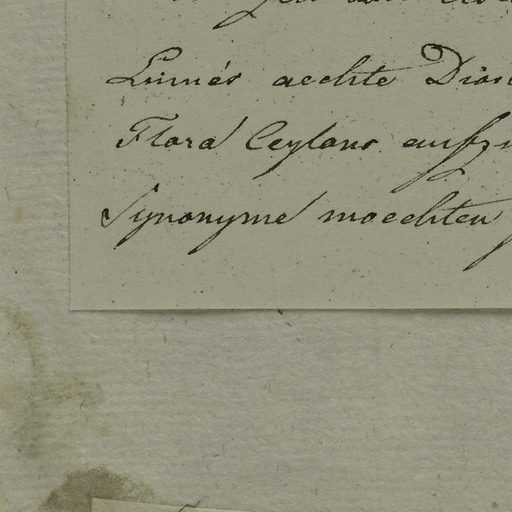 Linnés aechte Dios
Flora Ceylons aufzu
Synonyme moechten